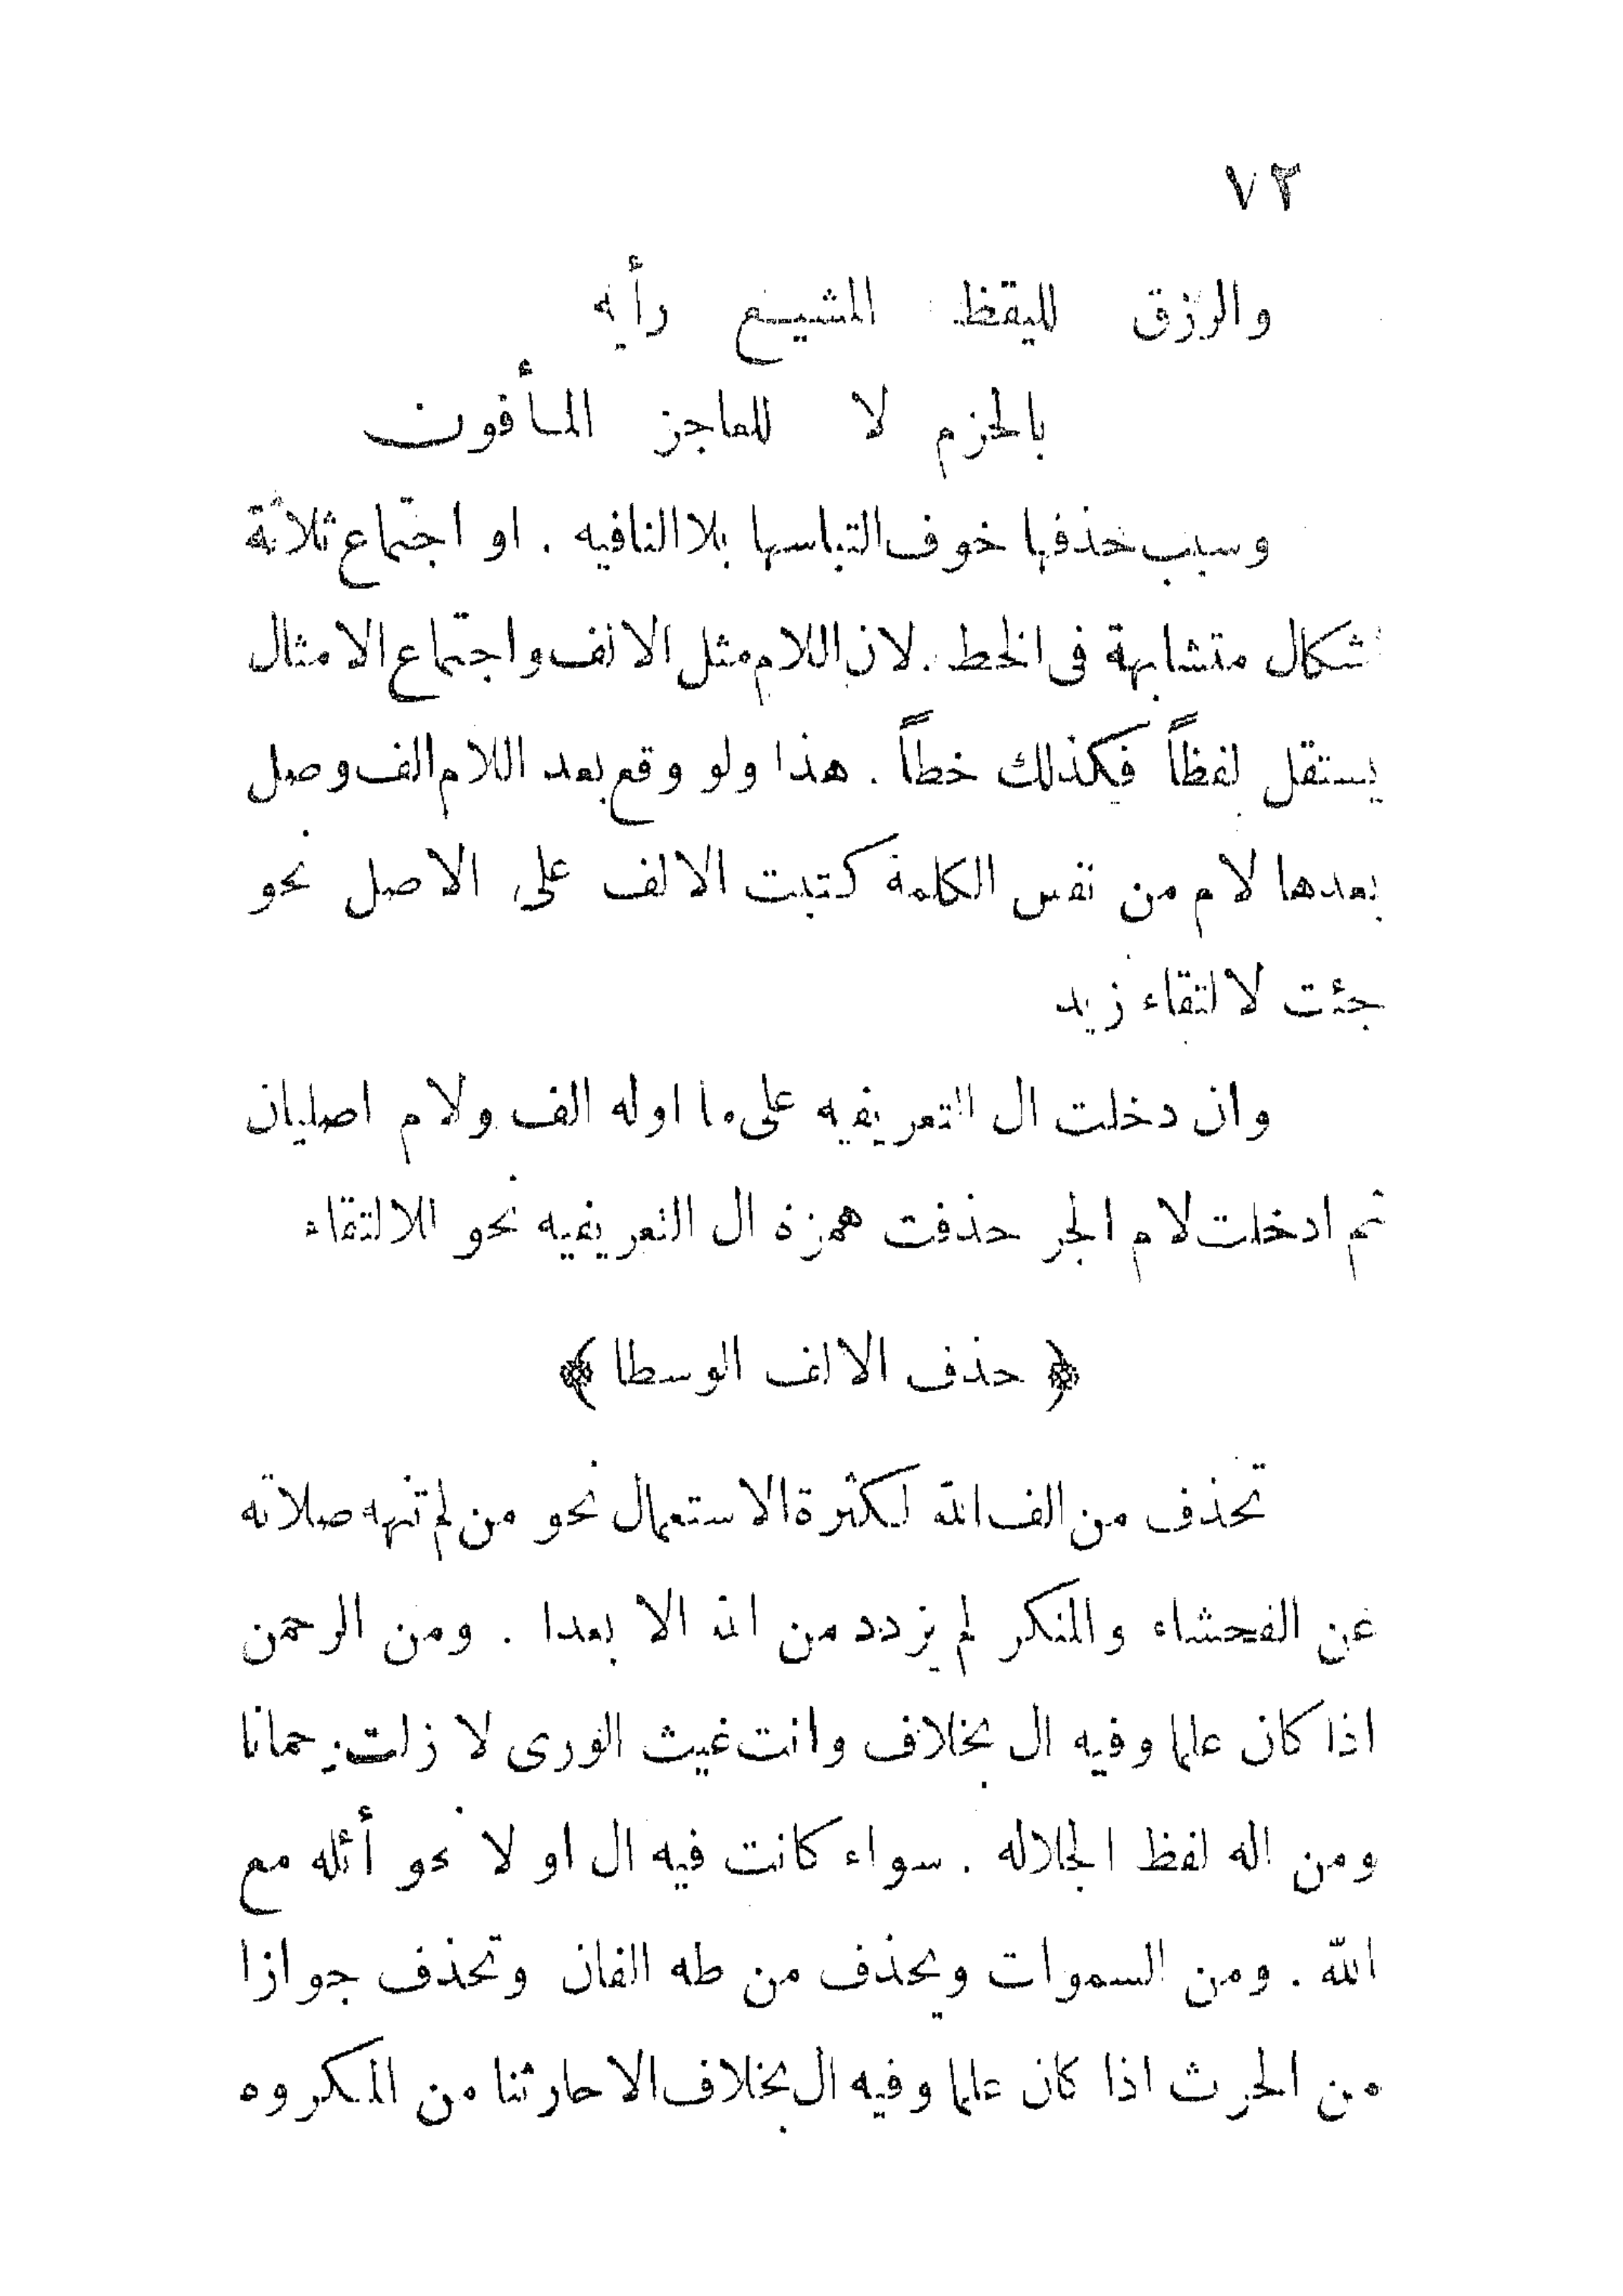 ٧٢
والرزق لليقظ المشيع رأيه
بالحزم لا للعاجز المأفون
وسبب حذفها خوف التباسها بلا النافيه . او اجتماع ثلاثة
اشكال متشابهة فى الخط . لان اللام مثل الالف واجتماع الامثال
يستثقل لفظاً فكذلك خطاً . هذا ولو وقع بعد اللام الف وصل
بعدها لام من نفس الكلمة كتبت الالف على الاصل نحو
جئت لالتقاء زيد
وان دخلت ال التعريفيه على ما اوله الف ولام اصليان
ثم ادخلت لام الجر حذفت همزة ال التعريفيه نحو للالتقاء
﴿ حذف الالف الوسطا ﴾
تحذف من الف الله لكثرة الاستعمال نحو من لم تنهه صلاته
عن الفحشاء والمنكر لم يزدد من الله الا بعدا . ومن الرحمن
اذا كان علما وفيه ال بخلاف وانت غيث الورى لا زلت رحمانا
ومن اله لفظ الجلاله . سواء كانت فيه ال او لا نحو أئله مع
الله . ومن السموات ويحذف من طه الفان وتحذف جوازا
من الحرث اذا كان علما وفيه ال بخلاف الا حارثنا من المكروه